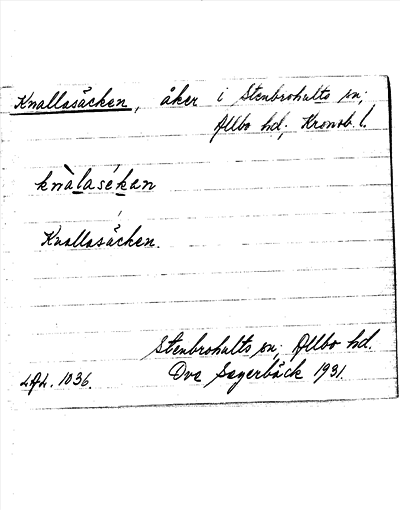 Knallasäcken, åker i Stenbrohults sn;
Allbo hd, Kronob. l.
knàlasékan
Knallasäcken.
Stenbrohults sn; Allbo hd.
Ove Sagerbäck 1931.
1036.